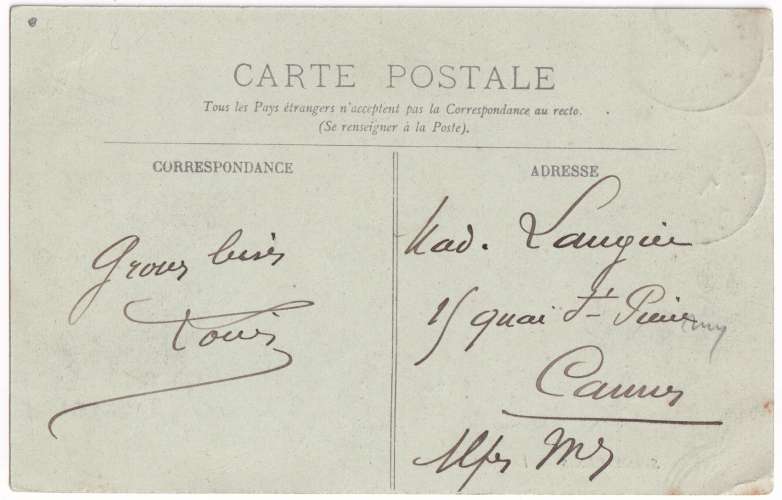 CARTE POSTALE
Tous les Pays étrangers n'acceptent pas la Correspondance au recto.
(Se renseigner à la Poste).
CORRESPONDANCE
Grosses bises
Louis
ADRESSE
Mad. Laugier
15 quai St Pierre
Cannes
Alpes Mes